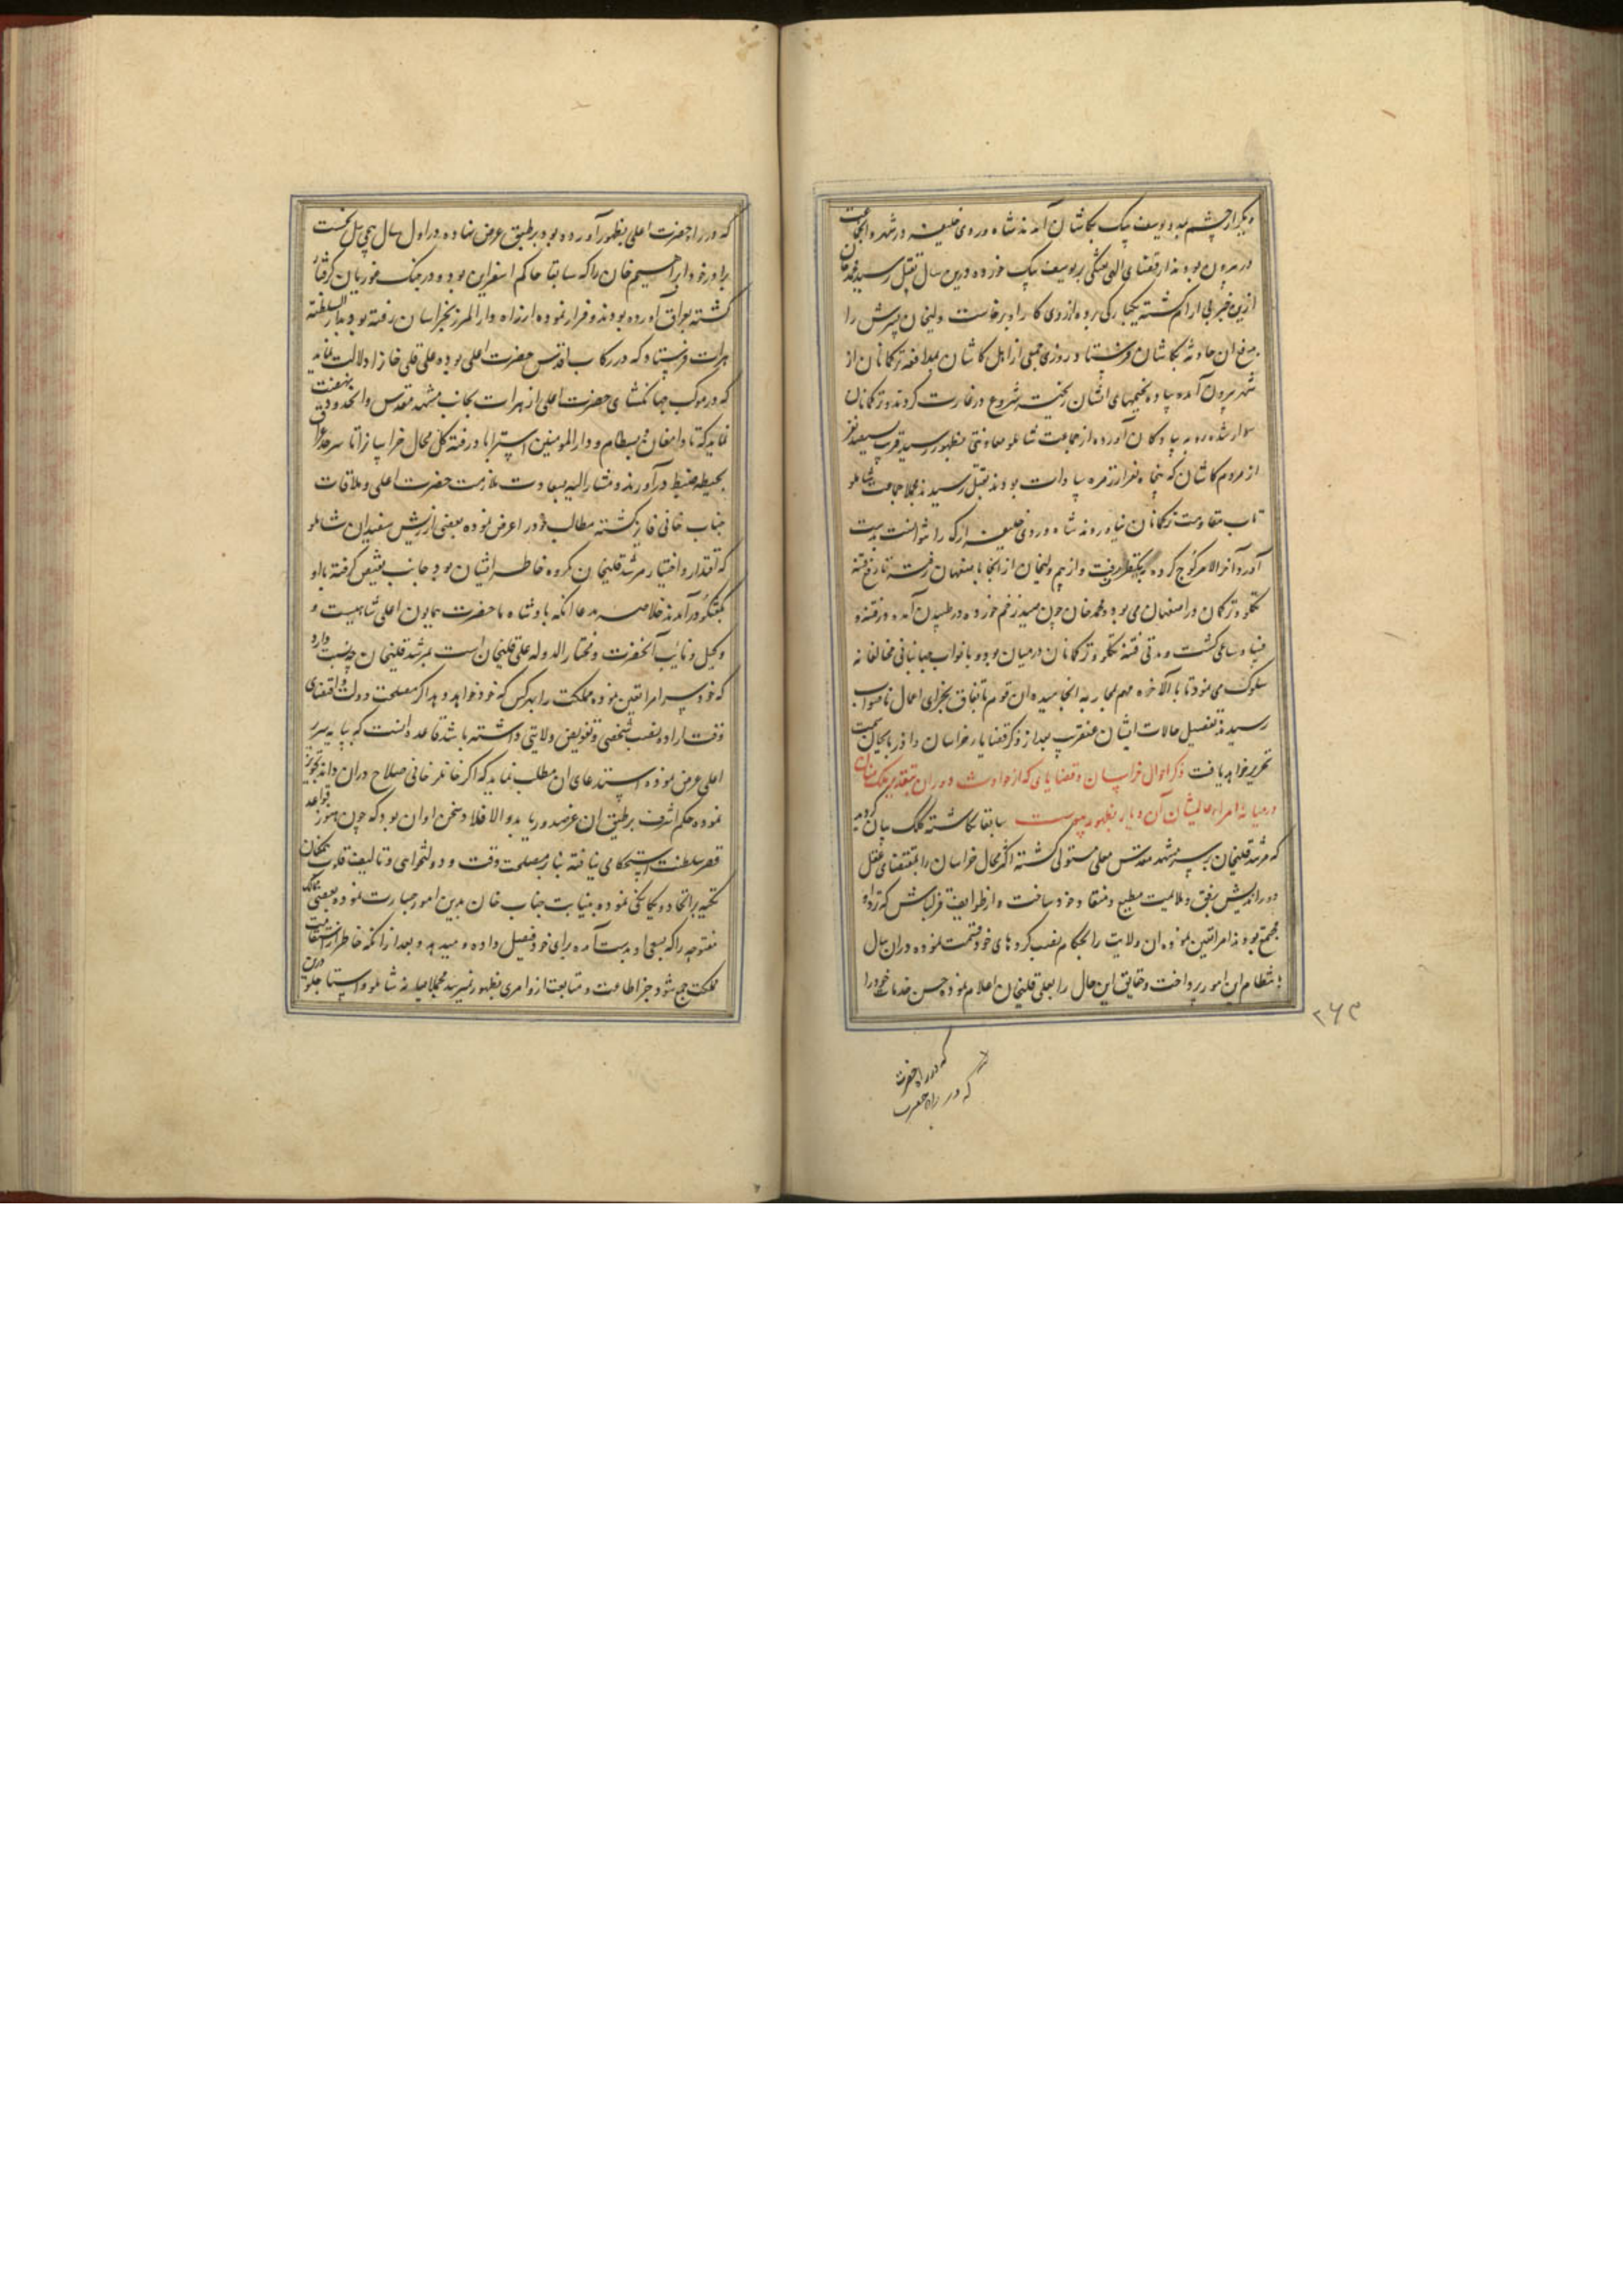 دیگر از چشم بد و یوسف بیک بکاشان آمدند شاه وردی خلیفه در شهر و انجماعت
در بیرون بودند از قضای الهی تفنگی بر یوسف بیک خورده درین سال بقتل رسید محمد خان
ازین خبر بی آرام گشته یکبارگی پرده از روی کار او برخاست ولیخان پسرش را
بدفع ان حادثه بکاشان فرستاد روزی جمعی از اهل کاشان بمدافعه ترکمانان از
شهر بیرون آمده پیاده بخیمهای ایشان ریخته شروع در غارت کردند و ترکمانان
سوار شده رو به پیادگان آورده از جماعت شاملو معاونتی بظهور نرسید قریب سیصد نفر
از مردم کاشان که پنجاه نفر از زمره سادات بودند بقتل رسیدند مجملا جماعت شاملو
تاب مقاومت ترکمانان نیاورده شاه وردی خلیفه ارک را نتوانست بدست
آورد آخر الامر کوچ کرده بیکطرف رفت و از بیم ولیخان از انجا باصفهان رفته تا رفع فتنه
تکلو و ترکمان در اصفهان می بود و محمد خان چون صید زخم خورده در طپیدن آمده در فتنه و
فساد ساعی گشت و مدتی فتنه تکلو و ترکمانان در میان بود و با نواب جهانبانی مخالفانه
سلوک می نمود تا بالآخره مهم بمحاربه انجامیده ان قوم بی اتفاق بجزای اعمال ناصواب
رسیدند تفصیل حالات ایشان عنقریب بعد از ذکر قضایاء خراسان و اذربایجان سمت
تحریر خواهد یافت ذکر احوال خراسان و قضایای که از حوادث دوران بتقدیر ملک منان
در میانه امراء عالیشان آن دیار بظهور پیوست سابقا نگاشته کلک بیان گردید
که مرشد قلیخان بر سر مشهد مقدس معلی مستولی گشته اکثر محال خراسان را بمقتضای عقل
دوراندیش برفق و ملایمت مطیع و منقاد خود ساخت و از طوایف قزلباش که نزد او
مجتمع بودند امرا تعین نموده ان ولایت را بحکام نصب کرده های خود قسمت نموده در ان سال
بانتظام این امور پرداخت و حقایق این حال را بعلی قلیخان اعلام نموده حسن خدمات خود را
۲۶۳
که در راه حضرت
که در راه حضرت
که در راه حضرت اعلی بظهور آورده بود بر طبق عرض نهاده در اول سال هجی ییل نخست
برادر خود ابراهیم خان را که سابقا حاکم اسفراین بود و در جنگ غوریان گرفتار
گشته بعراق آورده بودند و فرار نموده از راه دار المرز بخراسان رفته بود بدار السلطنه
هرات فرستاد که در رکاب اقدس حضرت اعلی بوده علی قلی خانرا دلالت نماید
که در موکب جهانگشای حضرت اعلی از هرات بجانب مشهد مقدس و انحدود نهضت
نماید که تا دامغان و بسطام و دار المومنین استراباد رفته کل محال خراسانرا تا سرحد عراق
بحیطه ضبط درآورند و مشار الیه بسعادت ملازمت حضرت اعلی و ملاقات
جناب خانی فایز گشته مطالب خود را عرض نموده بعضی از ریش سفیدان شاملو
که اقتدار و اختیار مرشد قلیخان مکروه خاطر ایشان بود جانب نقیض گرفته با او
بگفتگو درآمدند خلاصه مدعا انکه پادشاه ما حضرت همایون اعلی شاهیست و
وکیل و نایب آنحضرت و مختار الدوله علی قلیخان است بمرشد قلیخان چه نسبت دارد
که خود سر امرا تعین نموده مملکت را بهر کس که خود خواهد بدهد اگر مصلحت دولت و اقتضای
وقت اراده نصب شخصی و تفویض ولایتی داشته باشد قاعده انست که بپایه سریر
اعلی عرض نموده استدعای ان مطلب نماید که اگر خاطر خانی صلاح در ان داند تجویز
نموده حکم اشرف بر طبق ان عز صدور یابد والا فلا و سخن او ان بود که چون هنوز قواعد
قصر سلطنت استحکامی نیافته بنا بر مصلحت وقت و دولتخواهی و تالیف قلوب همگنان
تکیه بر اتحاد و یگانگی نموده بنیابت جناب خان بدین امور جسارت نموده بعضی ممالک
مفتوحه را که بسعی او بدست آمده برای خود فیصل داده و میدهد و بعد از انکه خاطر از استقامت
مملکت جمع شود جز اطاعت و متابعت ازو امری بظهور نمیرسد مجملا میانه شاملو و استاجلو درین